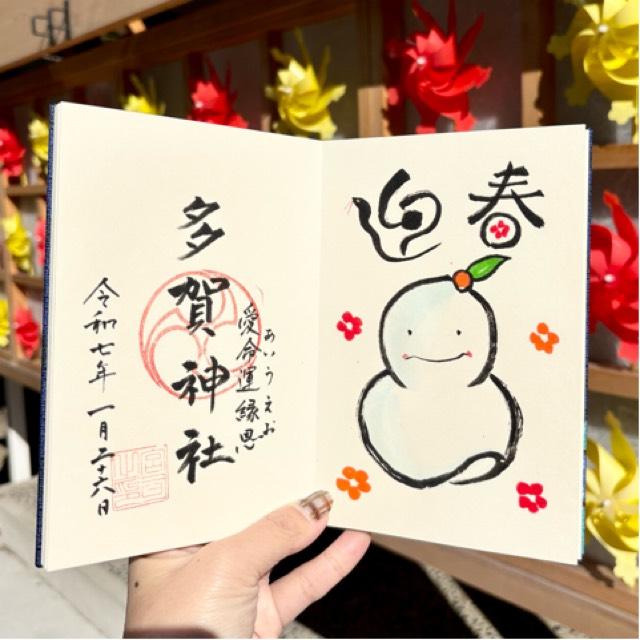 迎春
多賀神社
あいうえお
愛命運縁恩
令和七年一月二十六日